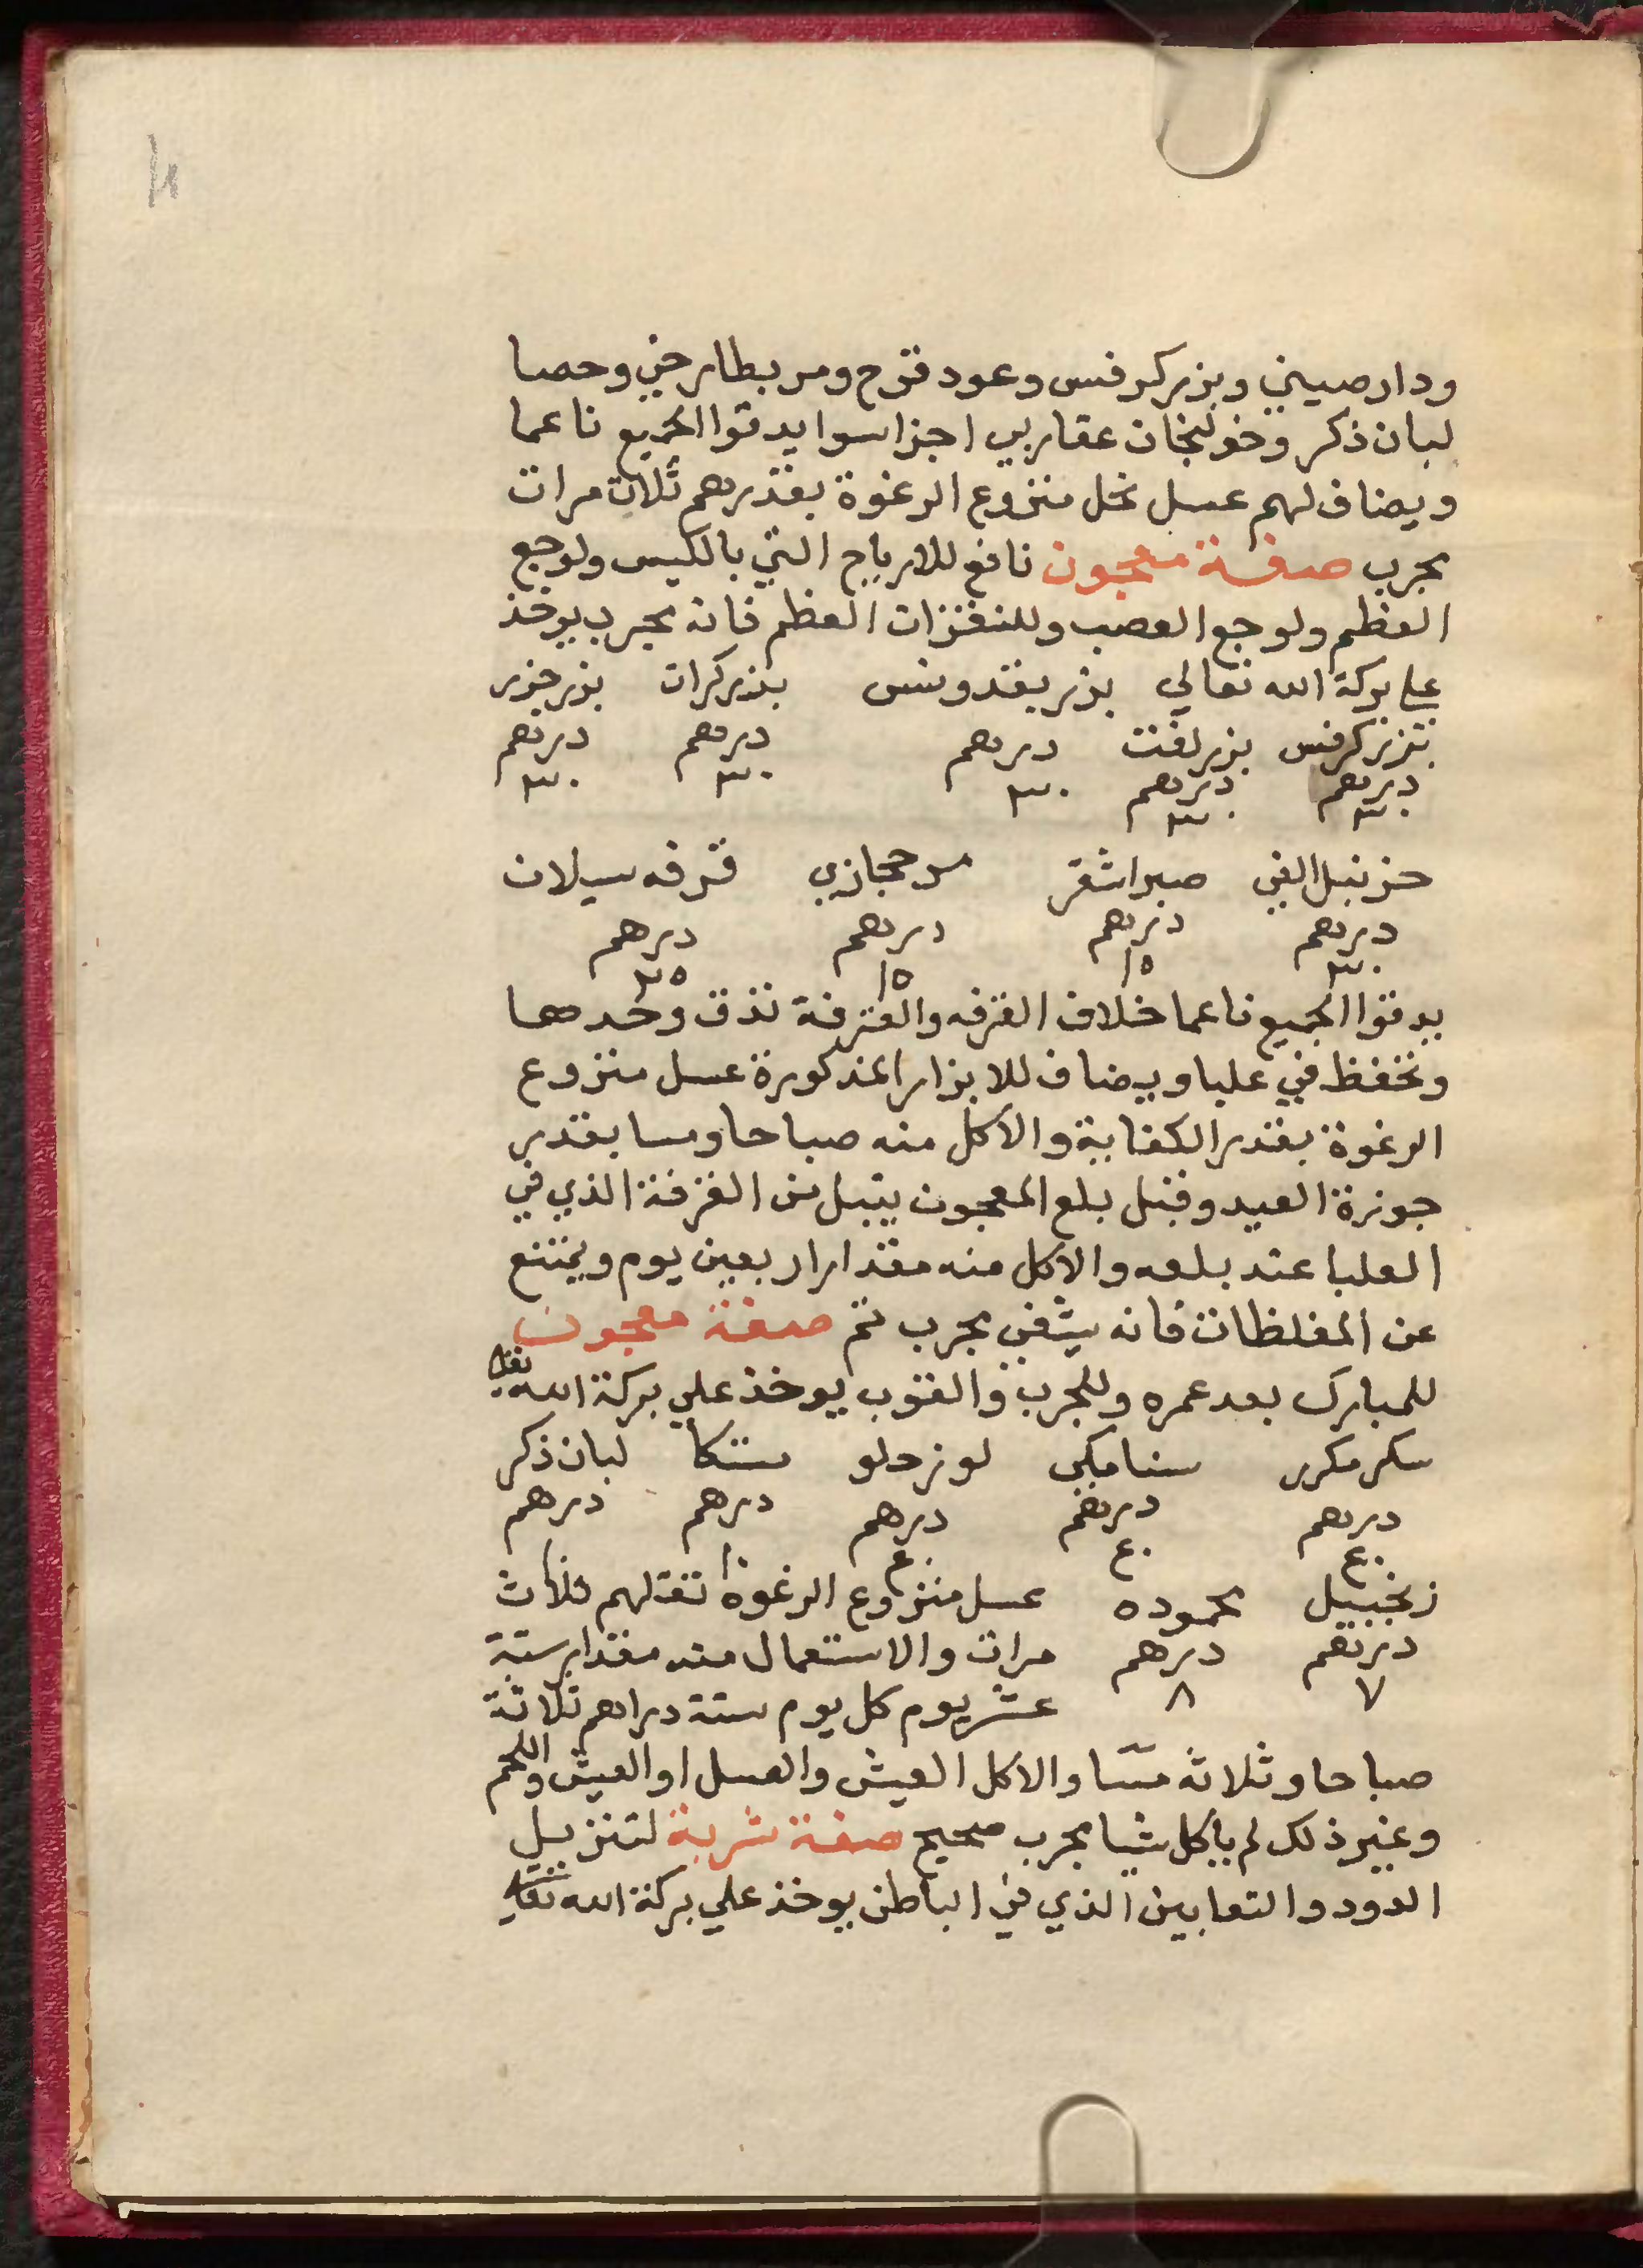 ودارصيني وبزركرفس وعود قرح ومر بطارخي وحصا
لبان ذكر وخولنجان عقاربي اجزا سوا يدقوا الجميع ناعما
ويضاف لهم عسل نحل منزوع الرغوة بقدرهم ثلاث مرات
مجرب صفة معجون نافع للارياح التي بالكيس ولوجع
العظم ولوجع العصب وللنغزات العظم فانه مجرب يوخذ
علي بركة الله تعالي بزر بقدونس بزر كرات بزر جزر
بزر كرفس بزر لفت درهم درهم درهم
درهم درهم ٣٠ ٣٠ ٣٠
٣٠ ٣٠
حزنبل الفي صبر اشقر مر حجازي قرفه سيلان
درهم درهم درهم درهم
٣٠ ١٥ ١٥ ٣٥
يدقوا الجميع ناعما خلاف القرفه والقرفة تدق وحدها
وتحفظ في علبا ويضاف للابزار المذكورة عسل منزوع
الرغوة بقدر الكفاية والاكل منه صباحا ومسا بقدر
جوزة العيد وقبل بلع المعجون يتبل من القرفة الذي في
العلبا عند بلعه والاكل منه مقدار اربعين يوم ويمتنع
عن المغلظات فانه يشفي مجرب تم صفة معجون
للمبارك بعد عمره وللجرب والقوب يوخذ علي بركة الله تعالي
سكر مكرر سنامكي لوز حلو مستكا لبان ذكر
درهم درهم درهم درهم درهم
٤٠ ٤٠ ٤٠ ١٠ ١٠
زنجبيل محموده عسل منزوع الرغوة تقلهم ثلاث
درهم درهم مرات والاستعمال منه مقدار ستة
٧ ٨ عشر يوم كل يوم ستة دراهم ثلاثة
صباحا وثلاثة مسا والاكل العيش والعسل او العيش واللحم
وغير ذلك لم ياكل شيا مجرب صحيح صفة شربة لتنزيل
الدود والتعابين الذي في الباطن يوخذ علي بركة الله تعالي